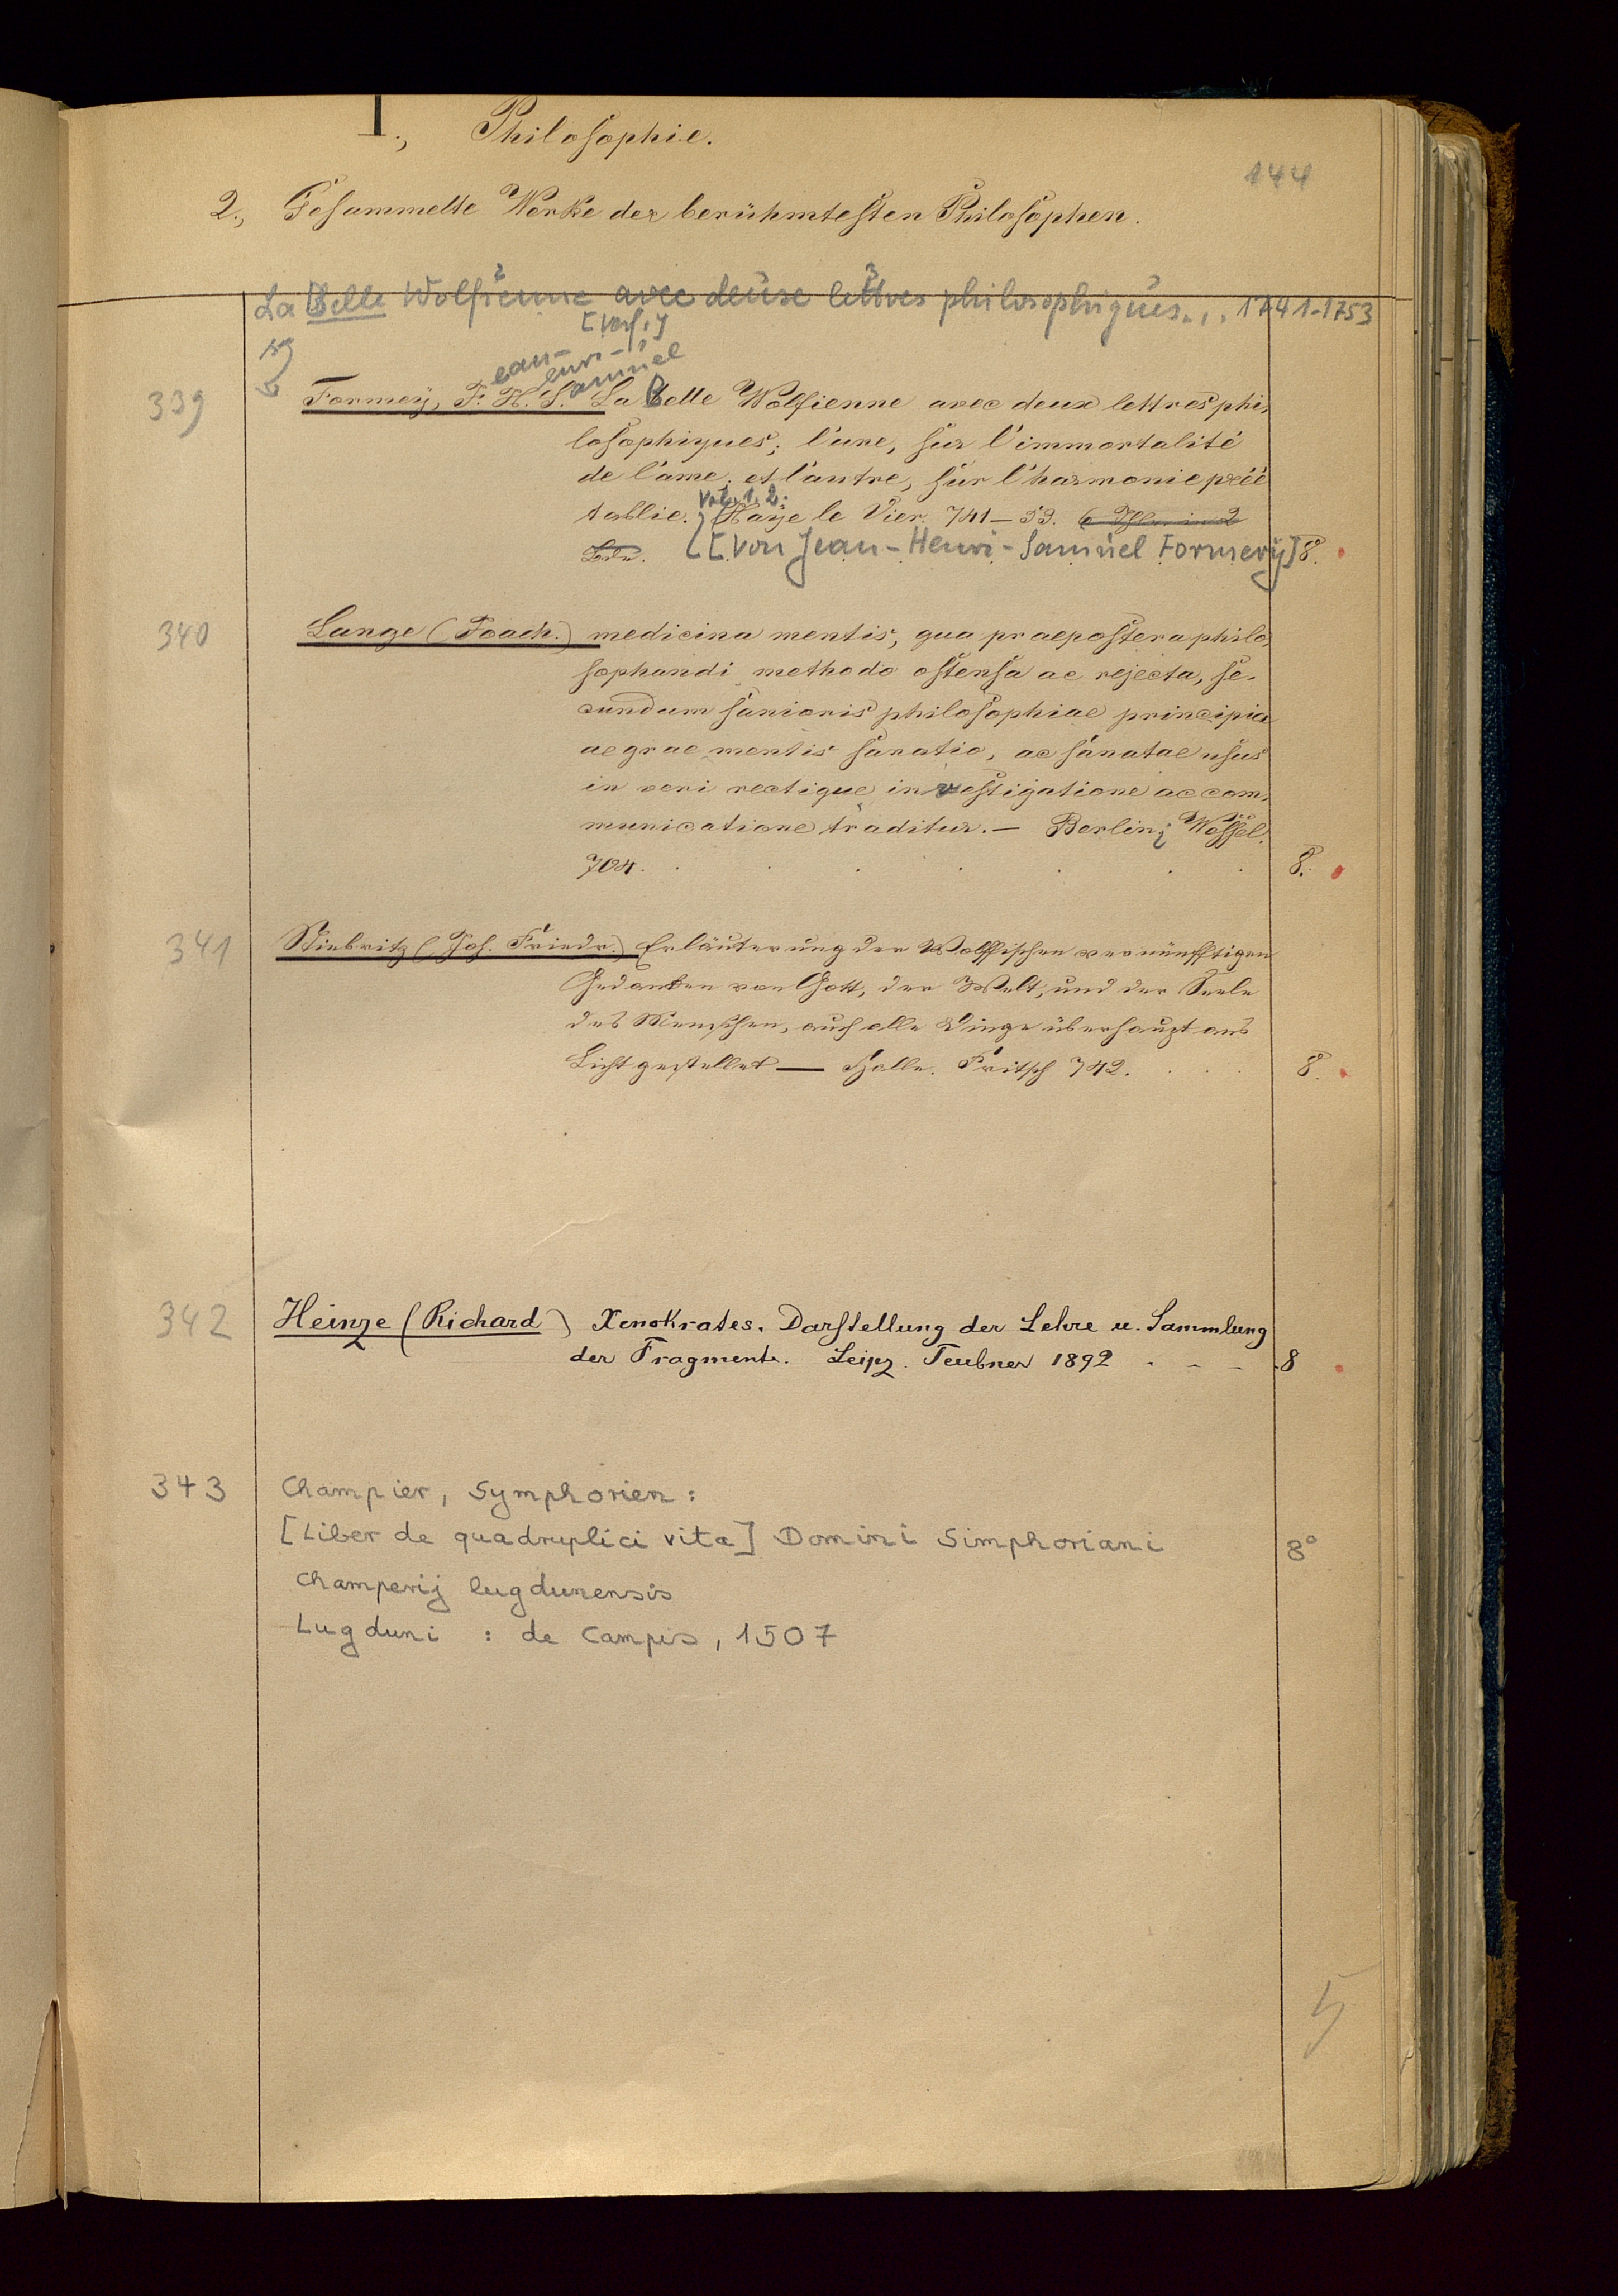 I., Philosophie.
144
2., Gesammelte Werke der berühmtesten Philosophen.
La Belle Wolfienne avec deuxe lettres philosophiques... 1741-1753
[Verf.]
ean-
enri-
amuel
339 Formey, J. H. S. La Belle Wolfienne avec deux lettres phi-
losophiques; l'une, sur l'immortalité
de l'ame, et l'autre, sur l'harmonie préé
tablie. Haye le Vier. 741–53. 6 Thle in 2
Vol. 1. 2.
Bdn. [von Jean-Henri-Samuel Formerÿ] 8.
340 Lange (Joach.) medicina mentis, qua praepostera philo-
sophandi methodo ostensa ac rejecta, se-
cundum sanioris philosophiae principia
aegrae mentis sanatio, ac sanatae usus
in veri rectique investigatione ac com-
municatione traditur. – Berlin; Wessel.
704. 8.
341 Stiebritz (Joh. Friedr.) Erläuterung der Wolffischen vernünfftigen
Gedanken von Gott, der Welt, und der Seele
des Menschen, auch alle Dinge überhaupt ans
Licht gestellet — Halle. Fritsch 742. 8.
342 Heinze (Richard) Xenokrates. Darstellung der Lehre u. Sammlung
der Fragmente. Leipz. Teubner 1892 . - - - 8
343 Champier, Symphorien:
[Liber de quadruplici vita] Domini Simphoriani 8°
Champerij lugdunensis
Lugduni : de Campis, 1507
5